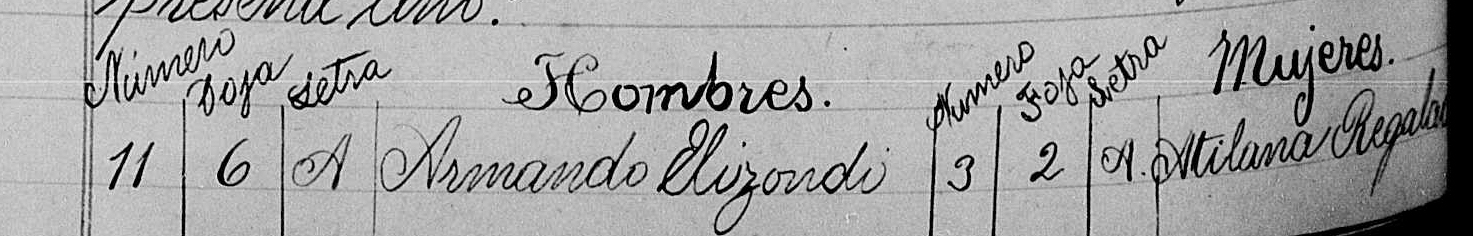 presente año.
Número Foja Letra Hombres. Numero Foja Letra Mujeres.
11 6 A Armando Elizondo 3 2 A. Atilana